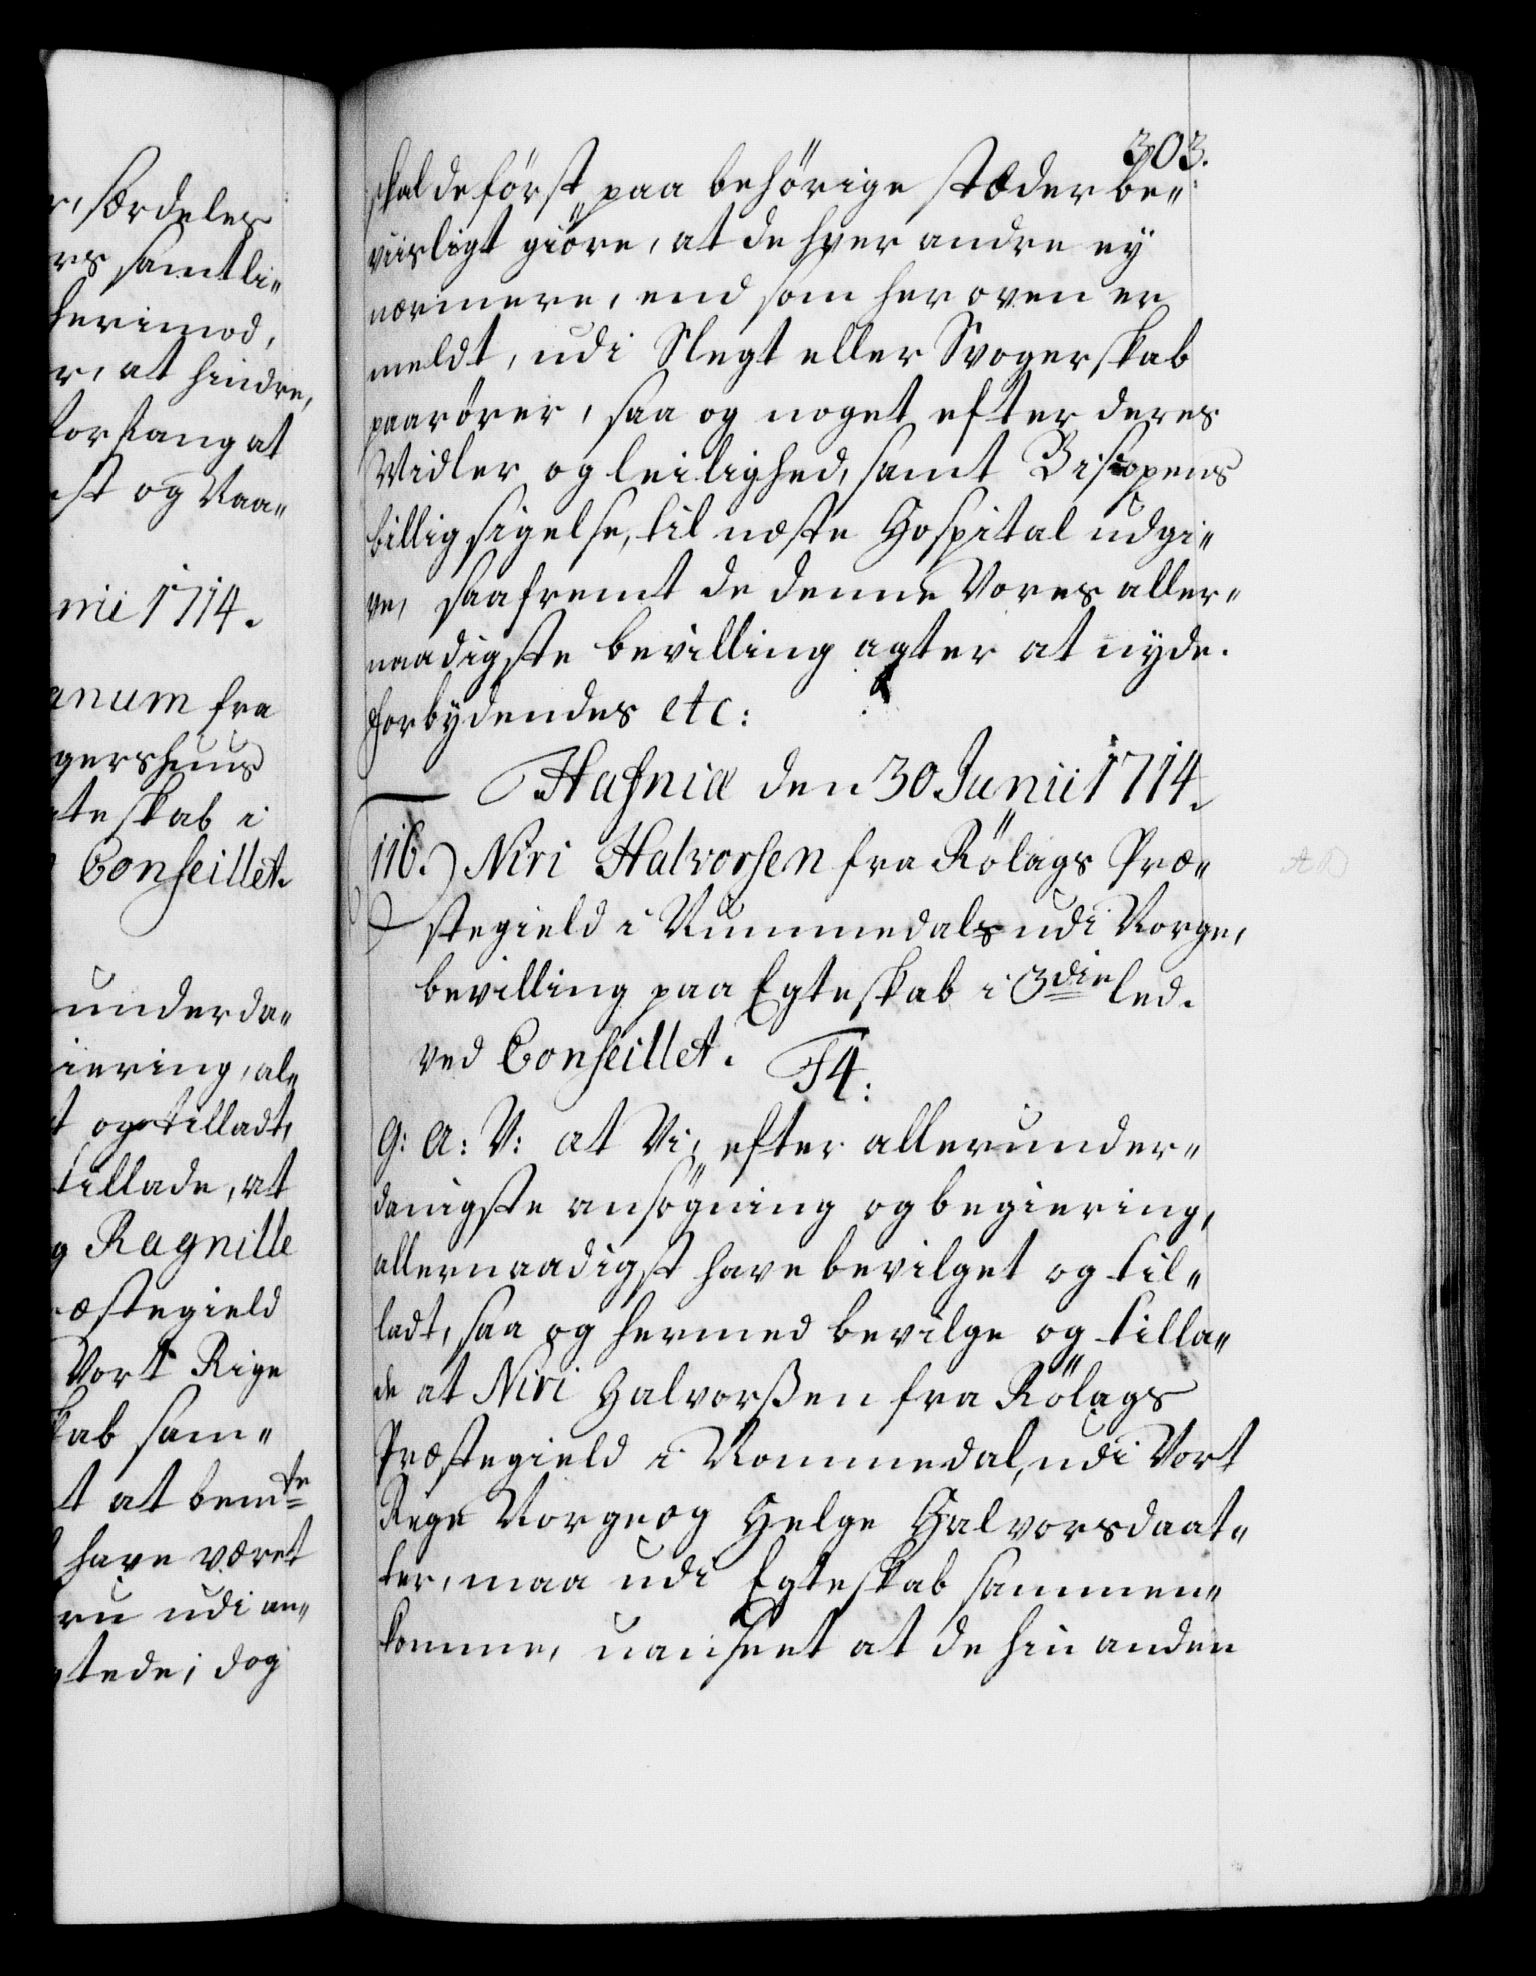 r, særdeles
rs samtli„
herimod,
r, at hindre,
forfang at
st og Naa„
nii 1714.
anum fra
gershuus
teskab i
Conseillet.
underda„
iering, al„
t og tilladt,
tillade, at
g Ragnille
æstegield
Vort Rige
kab sam„
t at bemte
have været
ru udi an„
gtede; dog
303.
skal de først, paa behörige stæder be„
viisligt giöre, at de hver andre ey
nærmere, end som her oven er
meldt, udi Slegt eller Svogerskab
paarörer, saa og noget efter deres
Midler og leilighed, samt Biscopens
billig sigelse, til næste Hospital udgi„
ve, saafremt de denne Vores aller„
naadigste bevilling agter at nyde.
Forbydendes etc:
Hafniæ den 30 Junii 1714.
116.) Niri Halvorsen fra Rölags Præ„
stegield i Nummedals udi Norge,
bevilling paa Egteskab i 3die led.
ved Conseillet. F4:
G: A: V: at Vi, efter allerunder„
danigste ansögning og begiering,
allernaadigst have bevilget og til„
ladt, saa og hermed bevilge og tilla„
de at Niri Halvorßen fra Rölags
Præstegield i Nommedal, udi Vort
Rige Norge og Helge Halvorsdaat„
ter, maa udi Egteskab sammen„
komme, uanseet at de hin anden